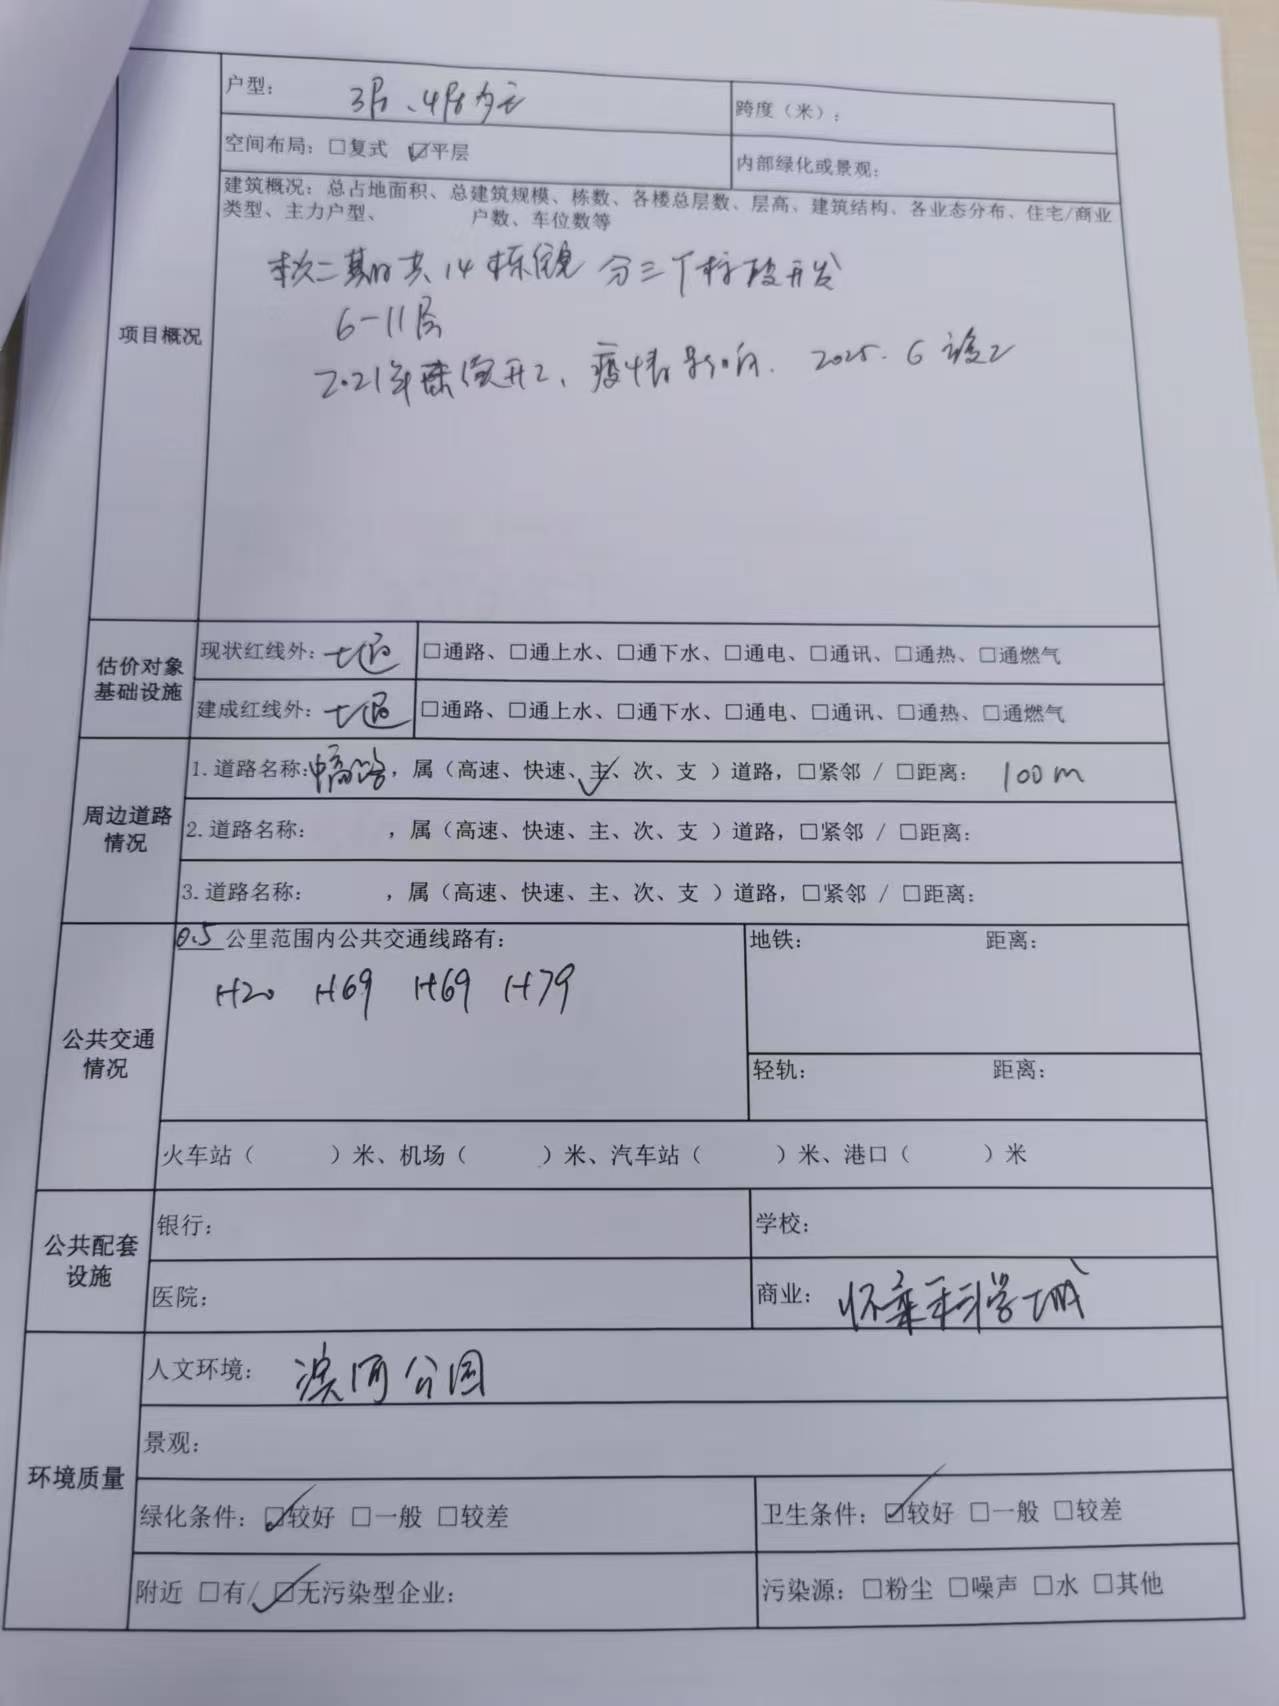 户型: 3居、4居为主
跨度（米）:
空间布局: □复式 ☑平层
内部绿化或景观:
建筑概况: 总占地面积、总建筑规模、栋数、各楼总层数、层高、建筑结构、各业态分布、住宅/商业
类型、主力户型、 户数、车位数等
项目概况
二期 共14栋 分三个标段开发
6-11层
2021年 开工、疫情影响. 2025.6 竣工
估价对象
基础设施
现状红线外: 七通
□通路、□通上水、□通下水、□通电、□通讯、□通热、□通燃气
建成红线外: 七通
□通路、□通上水、□通下水、□通电、□通讯、□通热、□通燃气
周边道路
情况
1.道路名称: 路, 属（高速、快速、主、次、支 ）道路, □紧邻 / □距离: 100m
2.道路名称: , 属（高速、快速、主、次、支 ）道路, □紧邻 / □距离:
3.道路名称: , 属（高速、快速、主、次、支 ）道路, □紧邻 / □距离:
公共交通
情况
0.5 公里范围内公共交通线路有:
H20 H69 H69 H79
地铁: 距离:
轻轨: 距离:
火车站（ ）米、机场（ ）米、汽车站（ ）米、港口（ ）米
公共配套
设施
银行:
学校:
医院:
商业: 怀柔科学城
环境质量
人文环境: 滨河公园
景观:
绿化条件: ☑较好 □一般 □较差
卫生条件: ☑较好 □一般 □较差
附近 □有/ ☑无污染型企业:
污染源: □粉尘 □噪声 □水 □其他